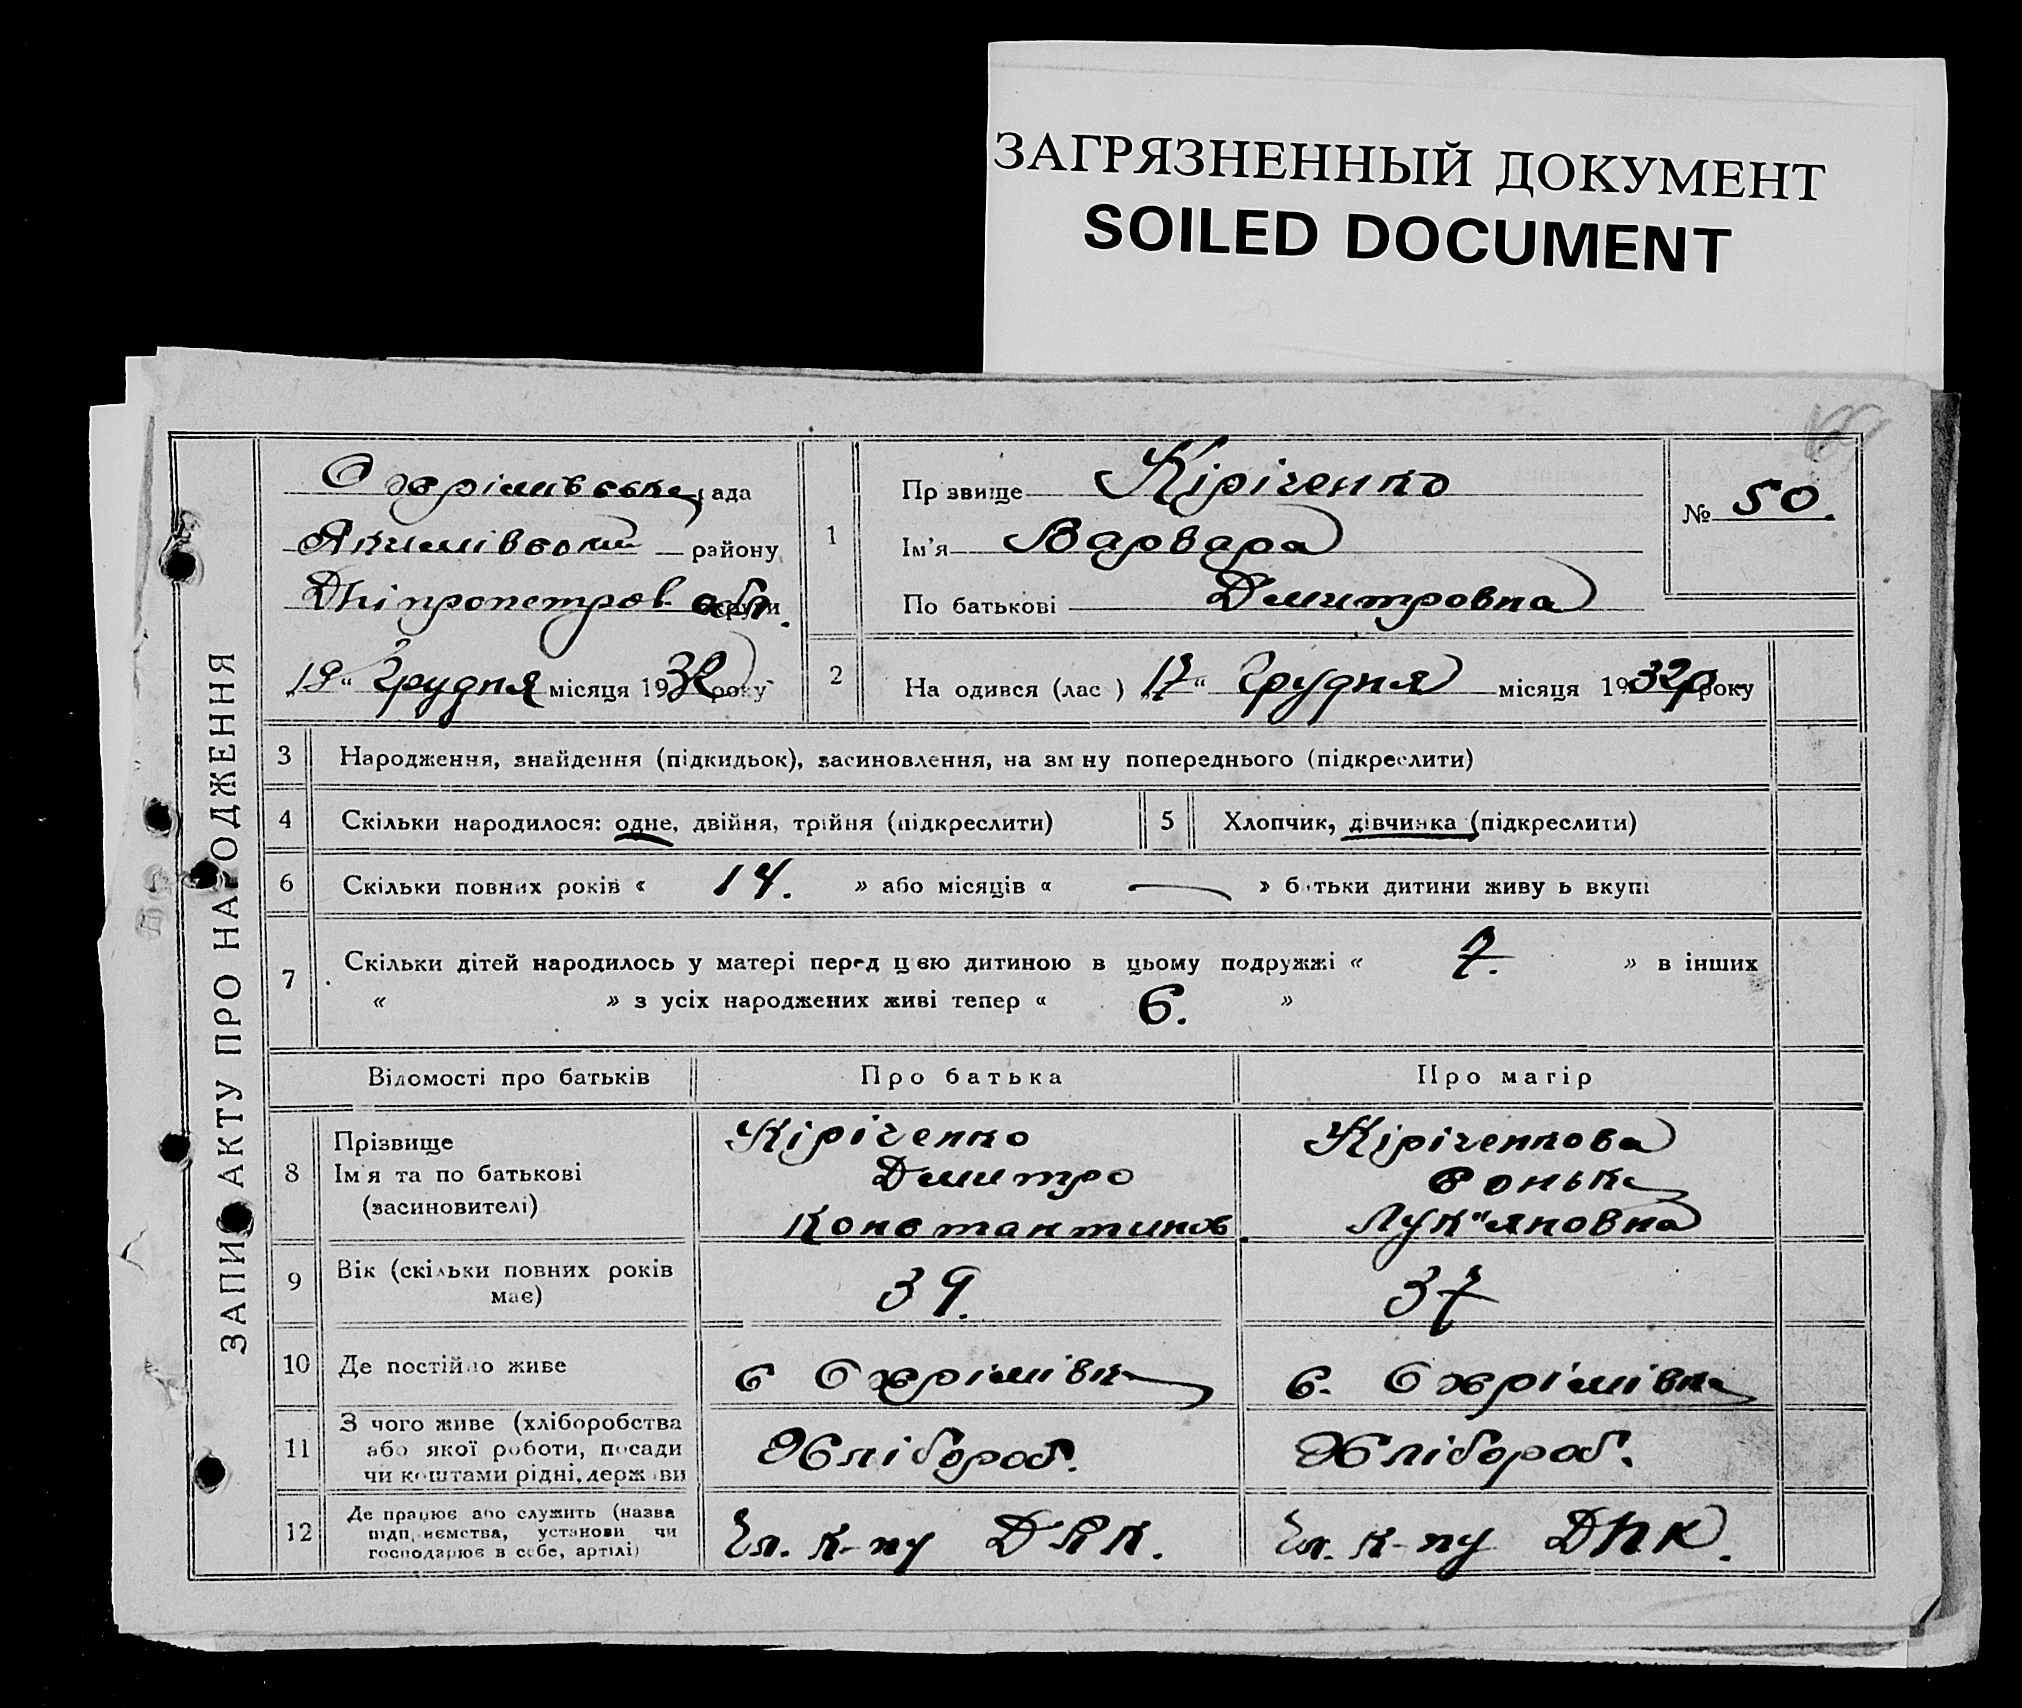 ЗАГРЯЗНЕННЫЙ ДОКУМЕНТ
SOILED DOCUMENT
ЗАПИС АКТУ ПРО НАРОДЖЕННЯ
Охрімівська рада
Якимівськ району
Дніпропетров. обл.
19 “ Грудня місяця 1932 року
1
Пр звище Кіріченко
Ім'я Варвара
По батькові Дмитровна
№ 50.
2
На одився (лас ) 17 “ Грудня місяця 1932р року
3 Народження, знайдення (підкидьок), засиновлення, на зм ну попереднього (підкреслити)
4 Скільки народилося: одне, двійня, трійня (підкреслити)
5 Хлопчик, дівчинка (підкреслити)
6 Скільки повних років « 14. » або місяців « — » батьки дитини живу ь вкупі
7 Скільки дітей народилось у матері перед цією дитиною в цьому подружжі « 7. » в інших
« » з усіх народжених живі тепер « 6. »
Відомості про батьків Про батька Про матір
8 Прізвище
Ім'я та по батькові
(засиновителі)
Кіріченко
Дмитро
Константинов.
Кіріченкова
Сонька
Лук"яновна
9 Вік (скільки повних років
має)
39.
37
10 Де постійно живе
с Охрімівка
с. Охрімівка
11 З чого живе (хліборобства
або якої роботи, посади
чи коштами рідні, держави
Хлібороб.
Хлібороб.
12 Де працює або служить (назва
підприємства, установи чи
господарює в себе, артілі)
Чл. к-пу ДНК.
Чл. к-пу ДНК.